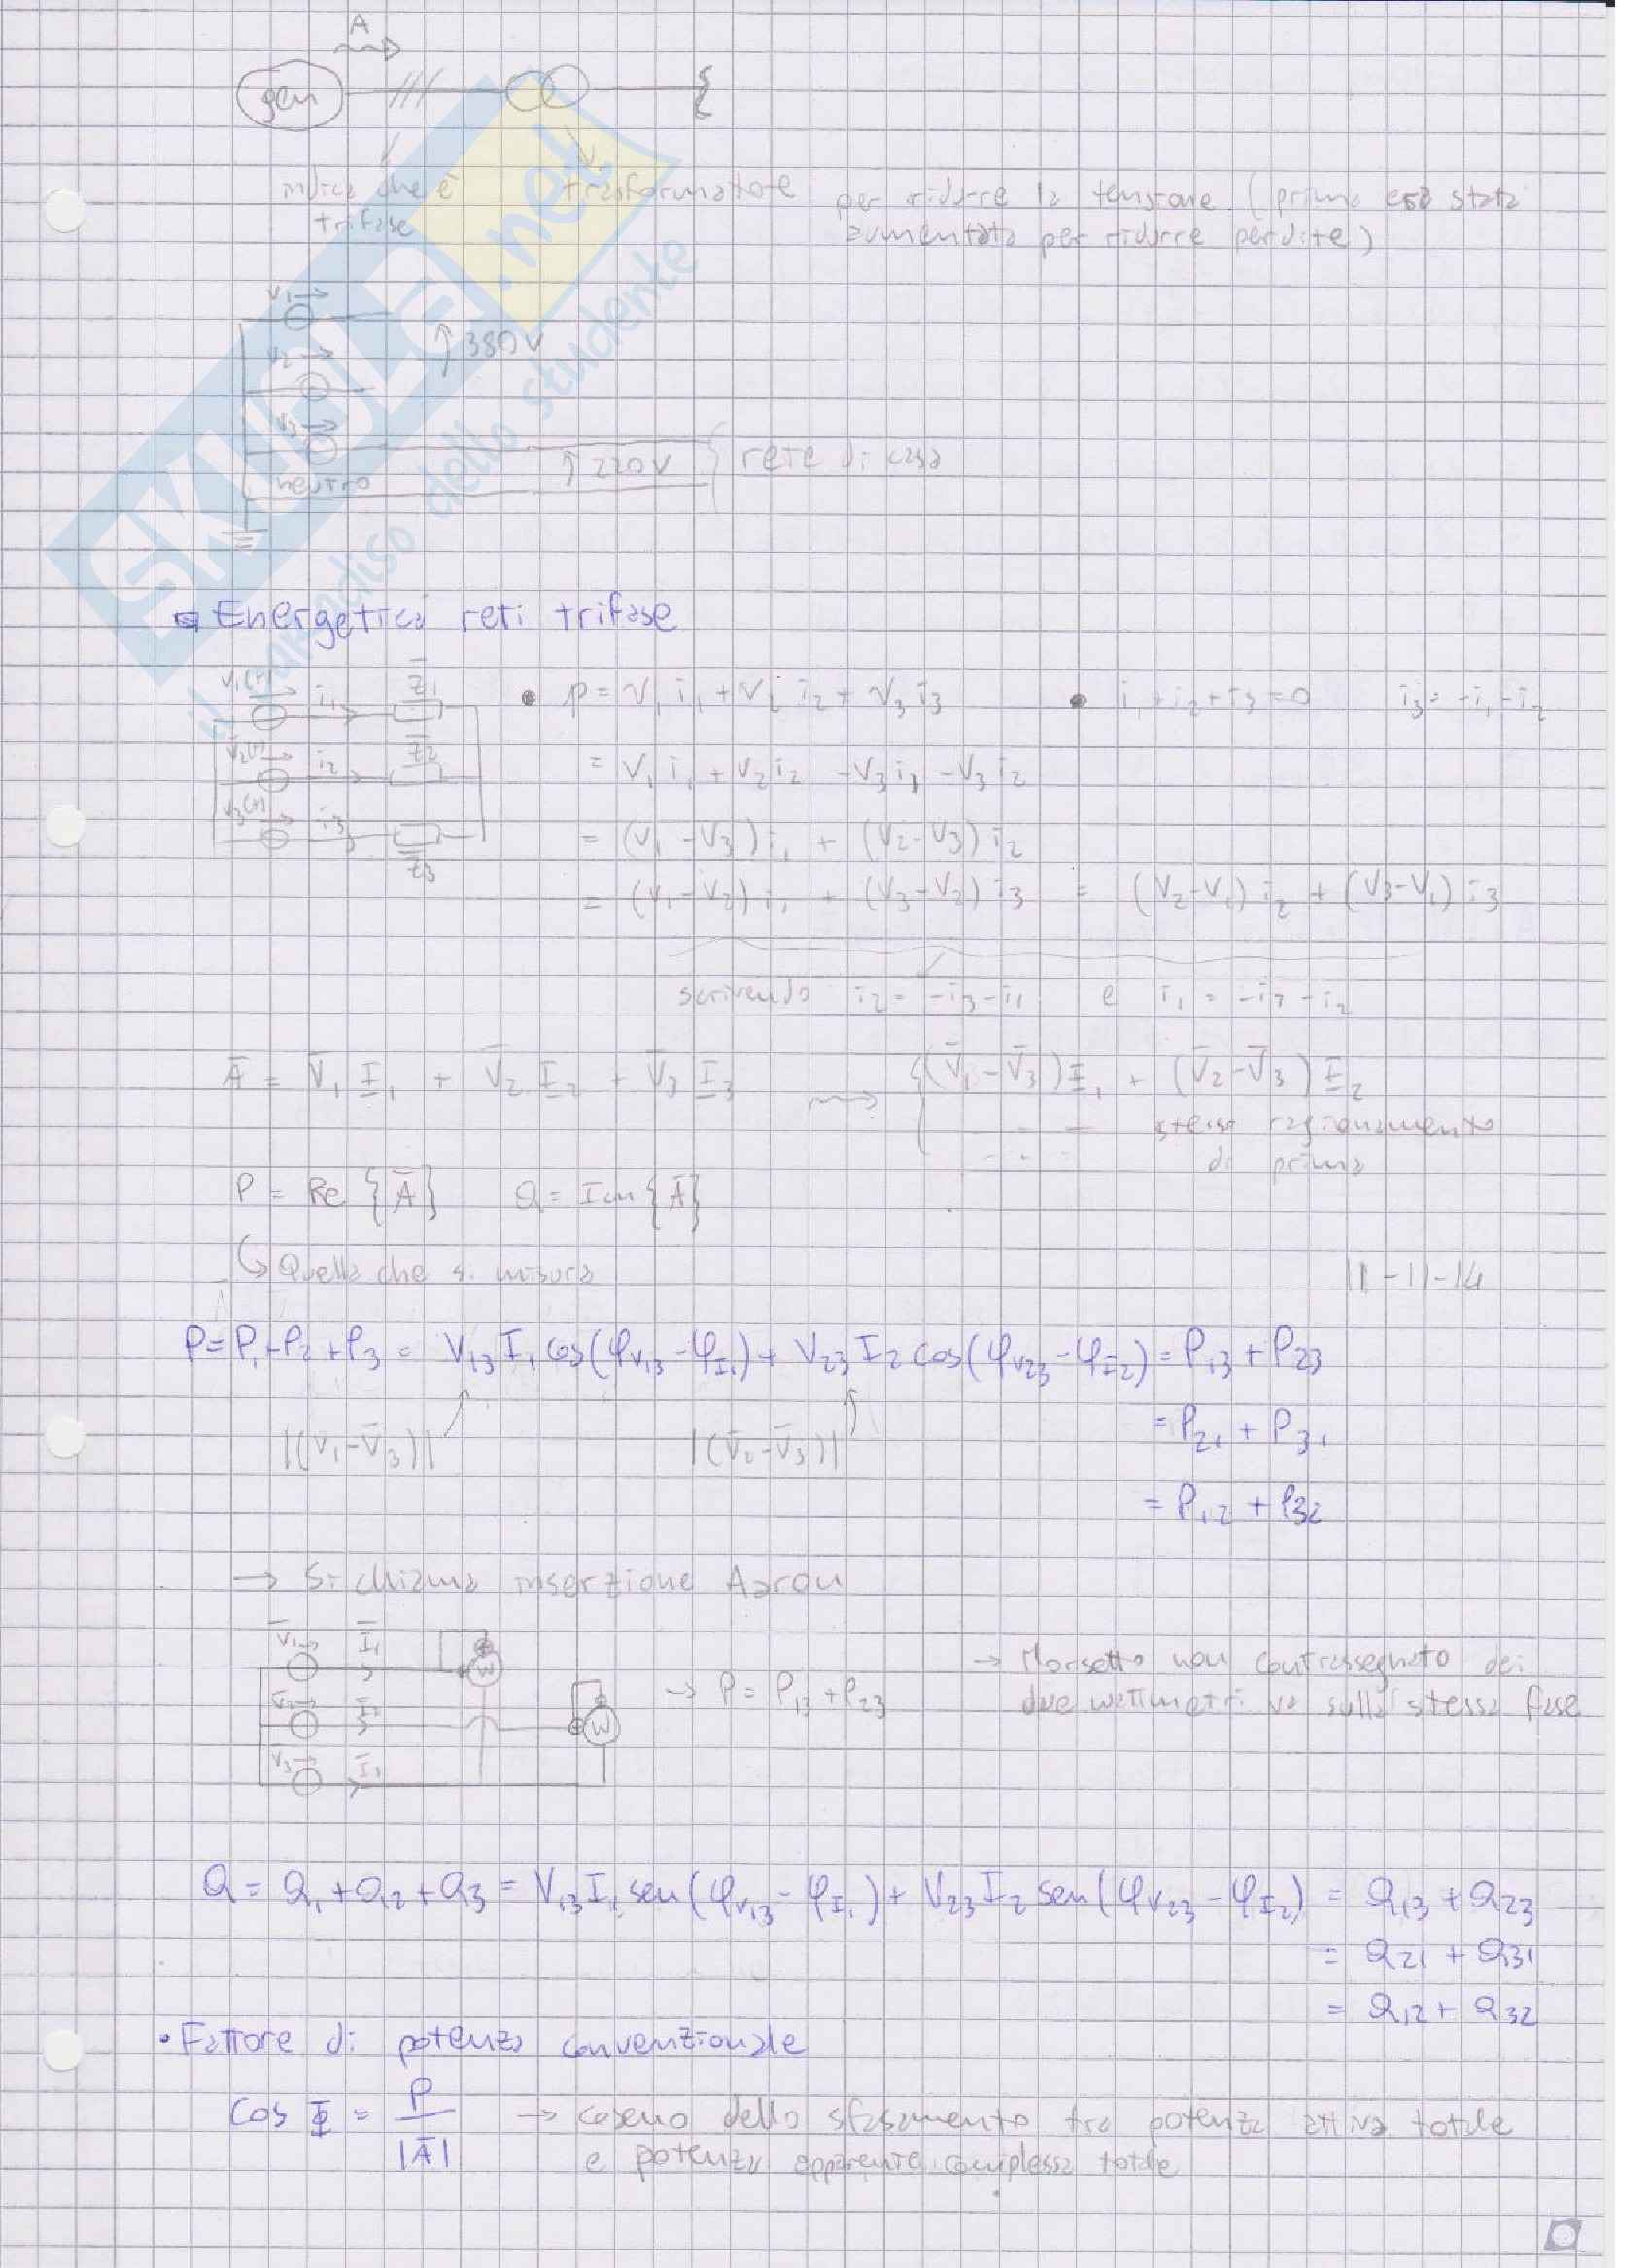 A
gen
indica che è trasformatore per ridurre la tensione (prima era stata
trifase aumentata per ridurre perdite)
V1
V2 ↑ 380V
V3
↑ 220V } rete di casa
neutro
SKUOLA.net
il paradiso dello studente
Energetica reti trifase
v1(t) i1 Z̄1 • p = v1 i1 + v2 i2 + v3 i3 • i1 + i2 + i3 = 0 i3 = -i1 - i2
v2(t) i2 Z̄2 = v1 i1 + v2 i2 - v3 i1 - v3 i2
v3(t) i3 Z̄3 = (v1 - v3) i1 + (v2 - v3) i2
= (v1 - v2) i1 + (v3 - v2) i3 = (v2 - v1) i2 + (v3 - v1) i3
scrivendo i2 = -i3 - i1 e i1 = -i3 - i2
Ā = V̄1 I̲1 + V̄2 I̲2 + V̄3 I̲3 → { (V̄1 - V̄3) I̲1 + (V̄2 - V̄3) I̲2
stesso ragionamento
di prima
P = Re {Ā} Q = Im {Ā}
↳ Quella che si misura
11-11-14
P = P1 + P2 + P3 = V13 I1 cos(φV13 - φI1) + V23 I2 cos(φV23 - φI2) = P13 + P23
|(V̄1 - V̄3)| |(V̄2 - V̄3)| = P21 + P31
= P12 + P32
→ Si chiama inserzione Aaron
V̄1 Ī1 W
V̄2 Ī2 W → P = P13 + P23
V̄3 Ī1
→ Morsetto non contrassegnato dei
due wattmetri va sulla stessa fase
Q = Q1 + Q2 + Q3 = V13 I1 sen(φV13 - φI1) + V23 I2 sen(φV23 - φI2) = Q13 + Q23
= Q21 + Q31
= Q12 + Q32
• Fattore di potenza convenzionale
cos Φ = P / |Ā| → coseno dello sfasamento tra potenza attiva totale
e potenza apparente complessa totale